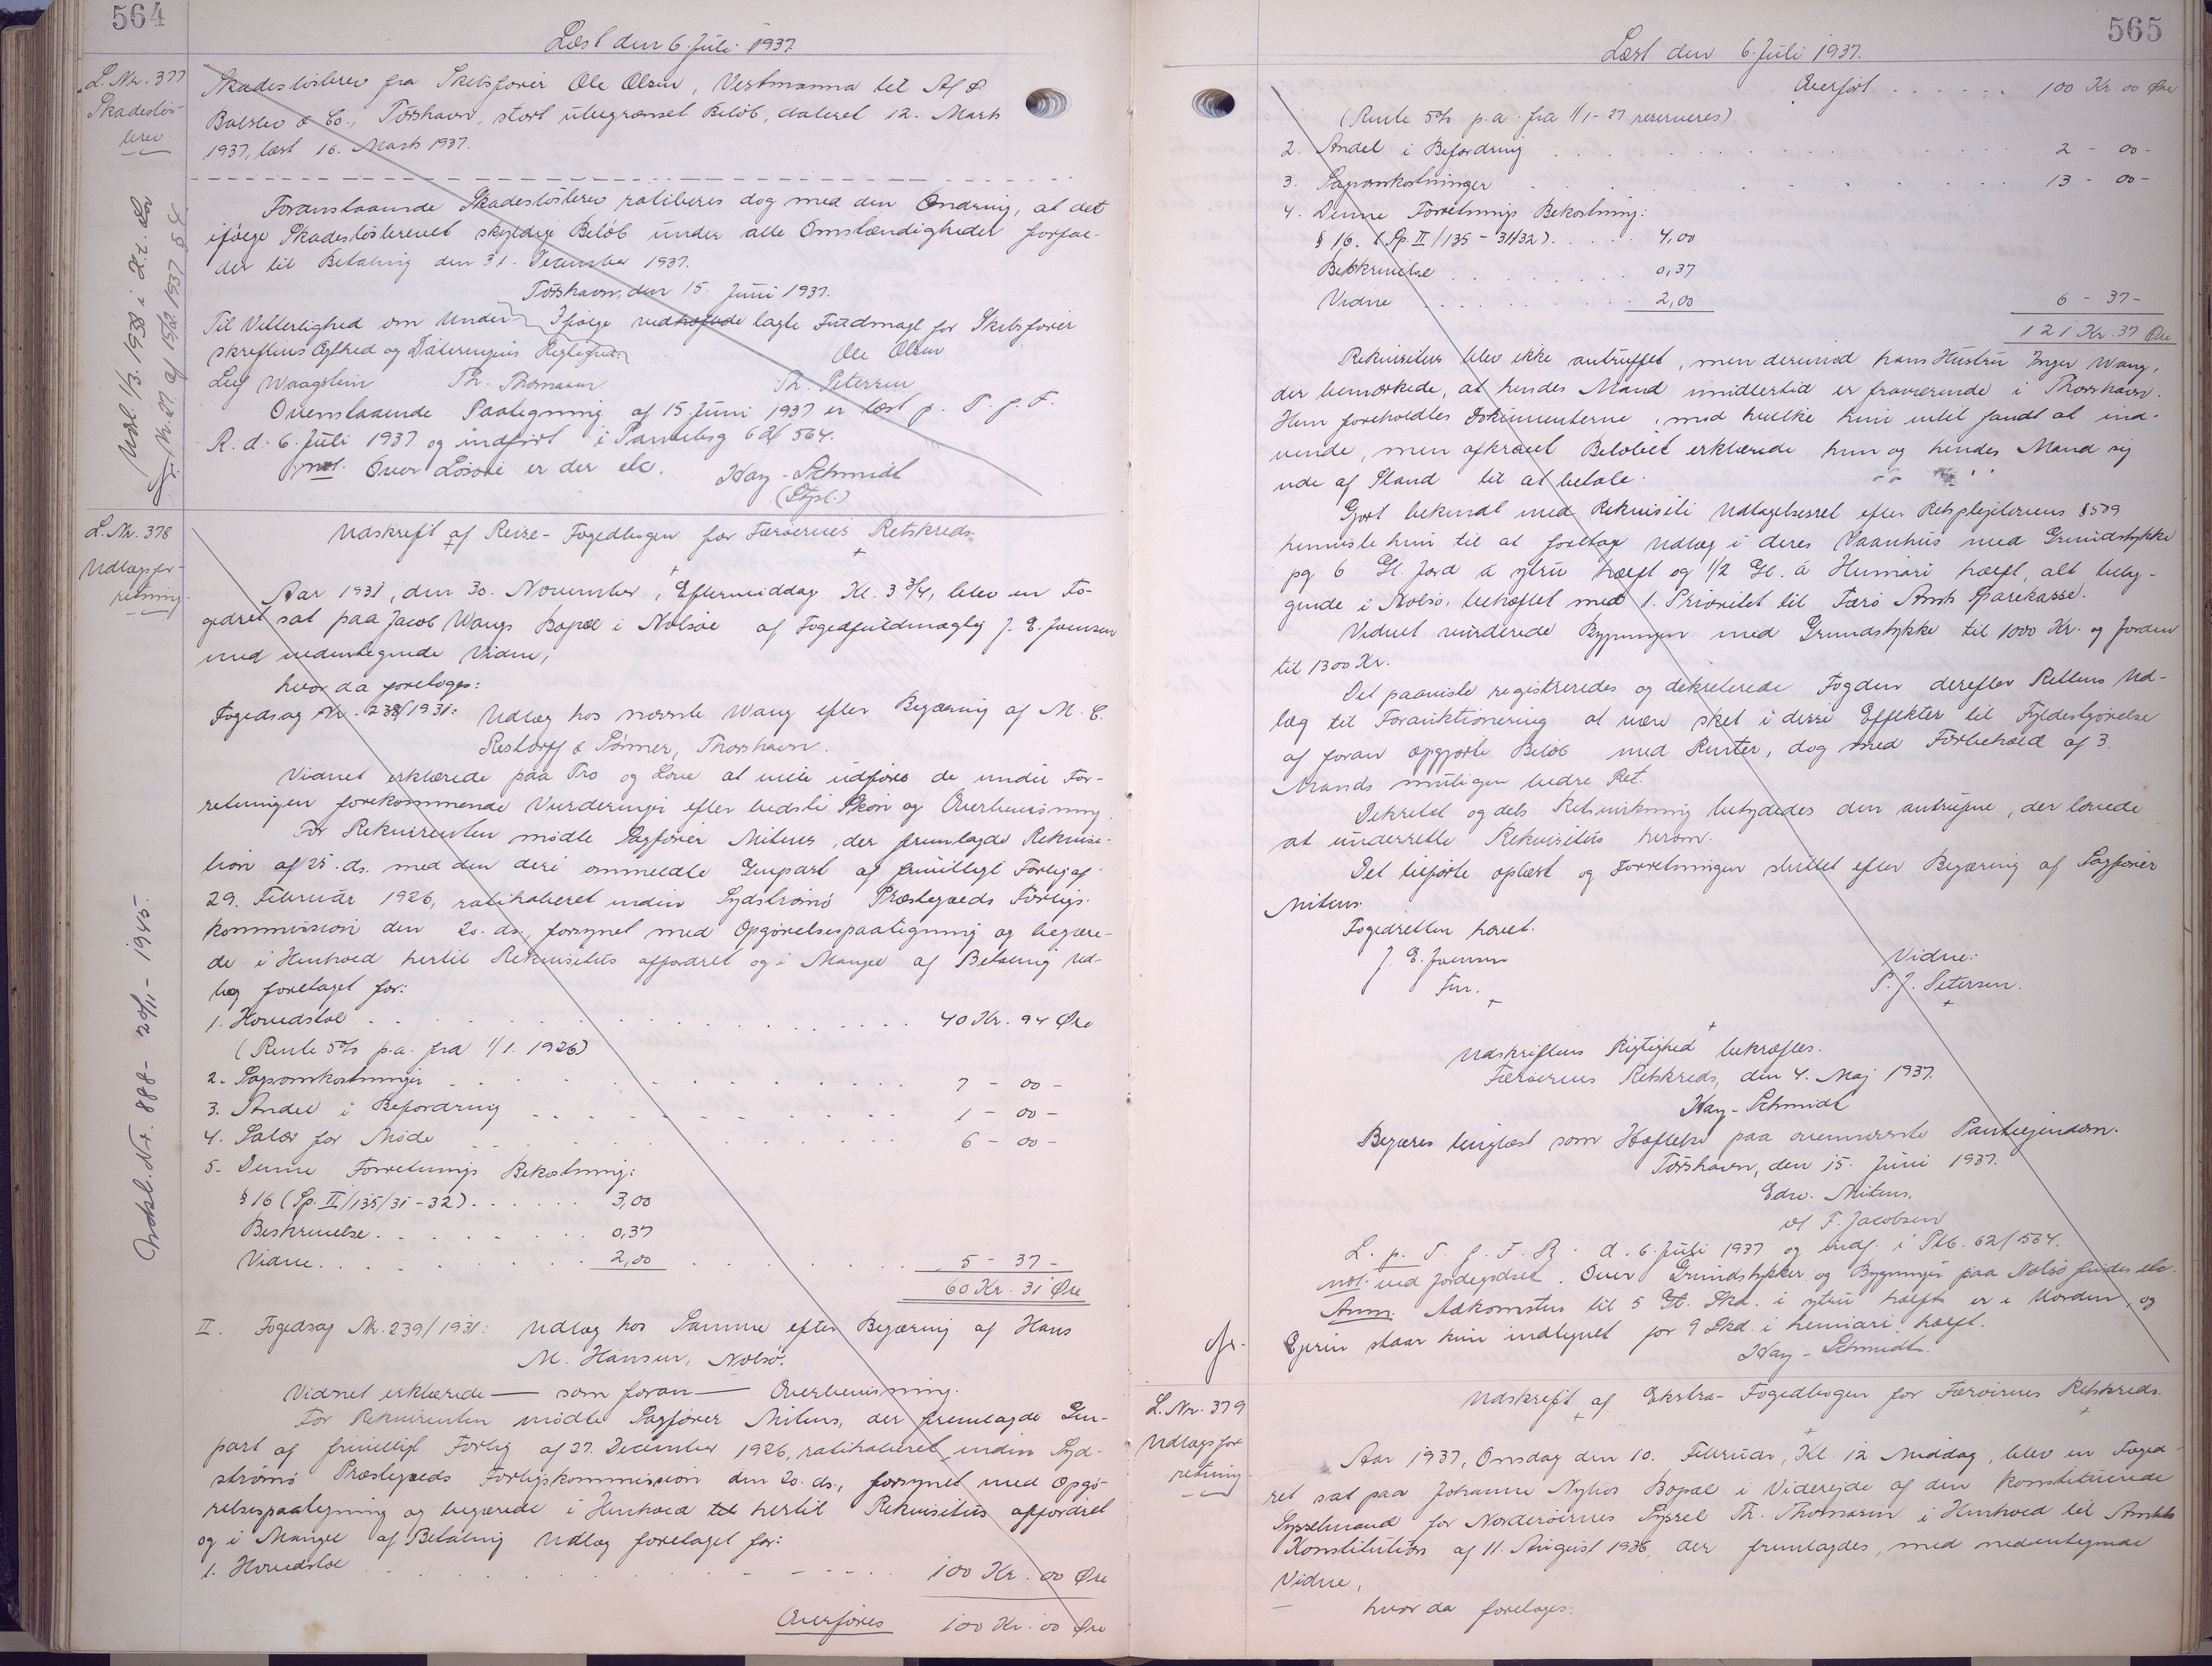 564
Læst den 6. Juli 1937.
L. Nr. 377
Skadesløs-
brev.
Skadesløsbrev fra Skibsfører Ole Olsen, Vestmanna til A/S
Balslev & Co., Tórshavn, stort ubegrænset Beløb, dateret 12. Marts
1937, læst 16. Marts 1937.
Foranstaaende Skadesløsbrev ratiberes dog med den Ændring, at det
ifølge Skadesløsbrevet skyldige Beløb under alle Omstændigheder forfal-
der til Betaling den 31. December 1937.
Tórshavn, den 15. Juni 1937.
Til Vitterlighed om Under-
skriftens Ægthed og Dateringens Rigtighed:
Ifølge vedhæftede lagte Fuldmagt for Skibsfører
Ole Olsen
Leif Waagstein Th. Thomasen Th. Petersen
Ovenstaaende Paategning af 15 Juni 1937 er læst p. T. f. F.
R. d. 6. Juli 1937 og indført i Pantebog 62/564.
not. Over Løsøre er der etc. Kay-Schmidt
(Stpl.)
Udsl. 1/3. 1938 i H. t. Lov
Nr. 27 af 15/2. 1937 § 4.
L. Nr. 378
Udlægsfor-
retning.
Udskrift af Rejse-Fogedbogen for Færøernes Retskreds.
Aar 1931, den 30. November, Eftermiddag Kl. 3 3/4, blev en Fo-
gedret sat paa Jacob Wangs Bopæl i Nolsøe af Fogedfuldmægtig J. E. Joensen
med undertegnede Vidne,
hvor da foretoges:
Fogedsag Nr. 238/1931: Udlæg hos nævnte Wang efter Begæring af M. C.
Restorff & Sønner, Thorshavn.
Vidnet erklærede paa Tro og Love at ville udføre de under For-
retningen forekommende Vurderinger efter bedste Skøn og Overbevisning.
For Rekvirenten mødte Sagfører Mitens, der fremlagde Rekvisi-
tion af 25. ds. med den deri ommeldte Genpart af frivilligt Forlig af
29. Februar 1926, ratihaberet inden Sydstrømø Præstegælds Forligs-
kommission den 20. ds., forsynet med Opgørelsespaategning og begære-
de i Henhold hertil Rekvisitus affordret og i Mangel af Betaling Ud-
læg foretaget for:
1. Hovedstol . . . . 40 Kr. 94 Øre
(Rente 5% p.a. fra 1/1. 1926)
2. Sagsomkostninger . . . . 7 - 00 -
3. Andel i Befordring . . . . 1 - 00 -
4. Salær for Møde . . . . 6 - 00 -
5. Denne Forretnings Bekostning:
§ 16 (Sp. II/135/31-32) . . . . 3,00
Beskrivelse . . . . 0,37
Vidne . . . . 2,00 . . . . 5 - 37 -
60 Kr. 31 Øre
Indkl. Nr. 888 - 20/11 - 1945.
II. Fogedsag Nr. 239/1931: Udlæg hos Samme efter Begæring af Hans
M. Hansen, Nolsø.
Vidnet erklærede — som foran — Overbevisning.
For Rekvirenten mødte Sagfører Mitens, der fremlagde Gen-
part af frivilligt Forlig af 27. December 1926, ratihaberet inden Syd-
strømø Præstegælds Forligskommission den 20. ds., forsynet med Opgø-
relsespaategning og begærede i Henhold til hertil Rekvisitus affordret
og i Mangel af Betaling Udlæg foretaget for:
1. Hovedstol . . . . 100 Kr. 00 Øre
Overføres 100 Kr. 00 Øre
565
Læst den 6. Juli 1937.
Overført . . . . 100 Kr. 00 Øre
(Rente 5% p.a. fra 1/1-27 reserveres)
2. Andel i Befordring . . . . 2 - 00 -
3. Sagsomkostninger . . . . 13 - 00 -
4. Denne Forretnings Bekostning:
§ 16. (Sp. II/135-31/32) . . . . 4,00
Beskrivelse . . . . 0,37
Vidne . . . . 2,00 6 - 37 -
121 Kr. 37 Øre
Rekvisitus blev ikke antruffet, men derimod hans Hustru Inger Wang,
der bemærkede, at hendes Mand imidlertid er fraværende i Thorshavn.
Hun foreholdtes Dokumenterne, mod hvilke hun intet fandt at ind-
vende, men afkrævet Beløbet erklærede hun og hendes Mand sig
ude af Stand til at betale.
Gjort bekendt med Rekvisiti Udlagelsesret efter Retsplejelovens § 509
henviste hun til at foretage Udlæg i deres Vaanhus med Grundstykke
og 6 Gl. Jord á ytru hælft og 1/2 Gl. á Heimari hælft, alt belig-
gende i Nolsø, behæftet med 1. Prioritet til Færø Amts Sparekasse.
Vidnet vurderede Bygningen med Grundstykke til 1000 Kr. og Jorden
til 1300 Kr.
Det paaviste registreredes og dekreterede Fogden derefter Rettens Ud-
læg til Forauktionering at være sket i disse Effekter til Fyldestgørelse
af foran opgjorte Beløb med Renter, dog med Forbehold af 3.
Mands muligen bedre Ret.
Dekretet og dets Retsvirkning betydedes den antrufne, der lovede
at underrette Rekvisitus herom.
Det tilførte oplæst og Forretningen sluttet efter Begæring af Sagfører
Mitens.
Fogedretten hævet.
J. E. Joensen
Fm.
Vidne:
P. J. Petersen.
Udskriftens Rigtighed bekræftes.
Færøernes Retskreds, den 4. Maj 1937.
Kay-Schmidt
Begæres tinglæst som Hæftelse paa ovennævnte Pantejendom.
Tórshavn, den 15. Juni 1937.
Edw. Mitens.
v/ F. Jacobsen
L. p. T. f. F. R. d. 6. Juli 1937 og indf. i Ptb. 62/564.
not. ved Jordegodset. Over Grundstykker og Bygninger paa Nolsø findes etc.
Anm. Adkomsten til 5 Gl. Skd. i ytru hælft er i Uorden, og
Ejeren staar kun indtegnet for 9 Skd. i heimari hælft.
Kay-Schmidt.
L. Nr. 379
Udlægsfor
retning.
Udskrift af Ekstra-Fogedbogen for Færøernes Retskreds.
Aar 1937, Onsdag den 10. Februar, Kl. 12 Middag, blev en Foged-
ret sat paa Johanne Nyhos Bopæl i Viderejde af den konstituerede
Sysselmand for Norderøernes Syssel Th. Thomasen i Henhold til Amtets
Konstitution af 11. August 1936, der fremlagdes, med nedentegnede
Vidne,
hvor da foretoges: